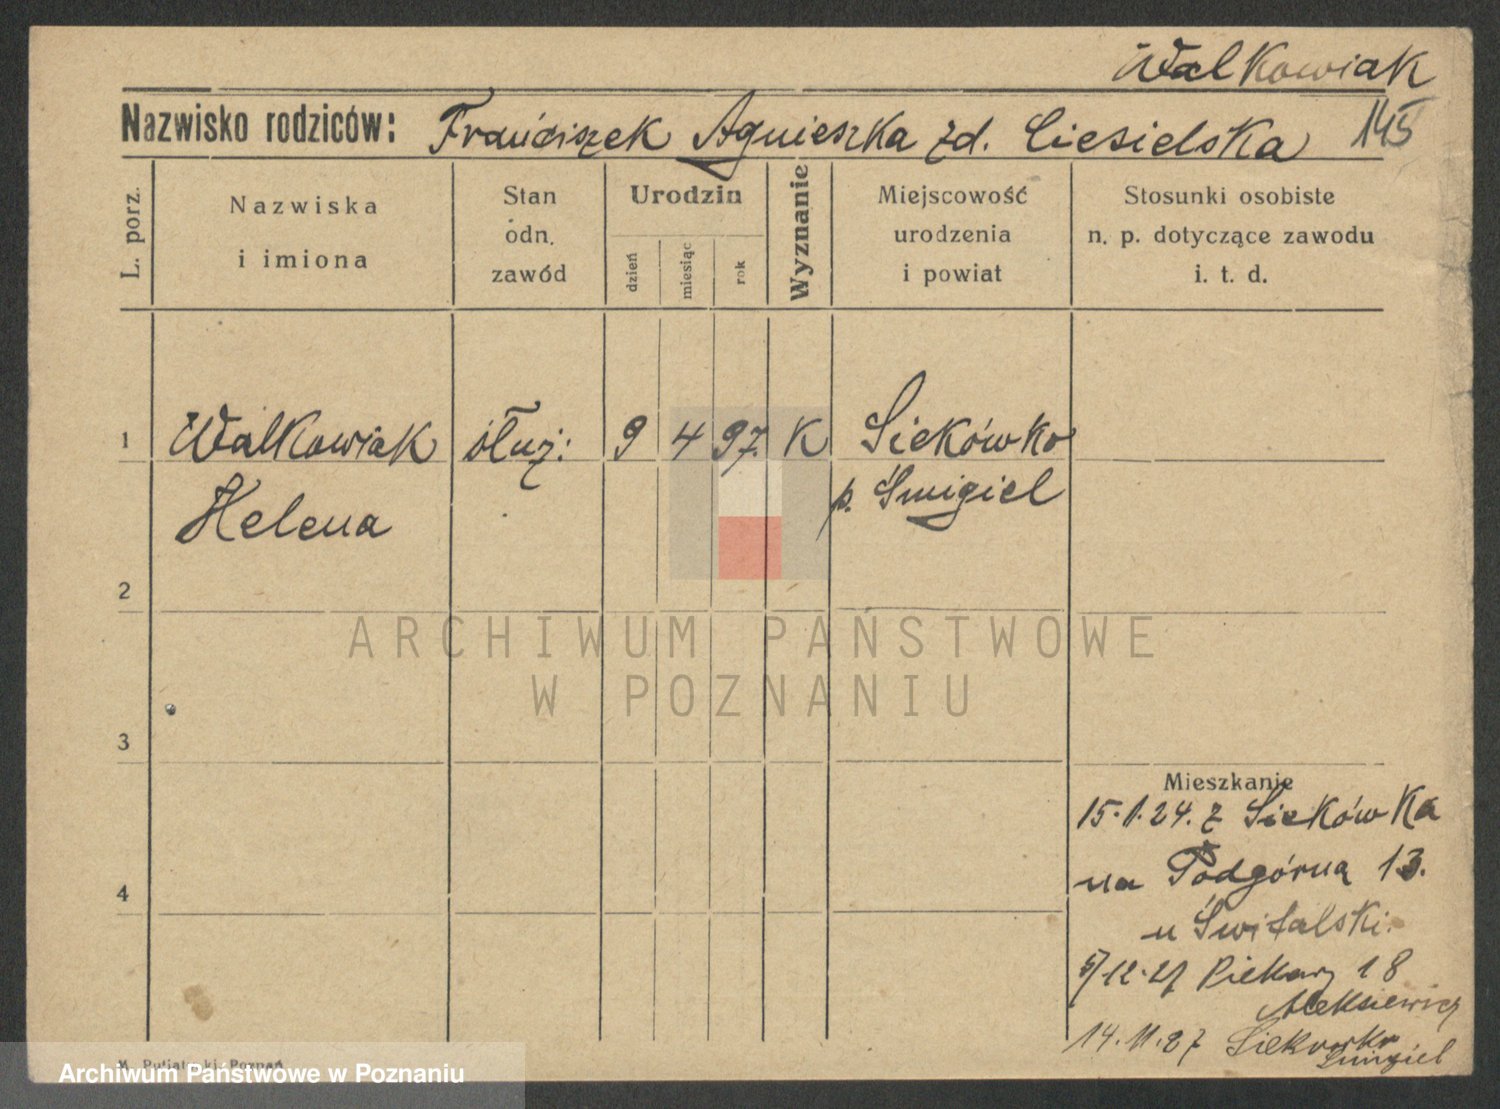 Walkowiak
Nazwisko rodziców: Franciszek Agnieszka zd. Ciesielska 145
L. porz.
Nazwiska
i imiona
Stan
odn.
zawód
Urodzin
dzień
miesiąc
rok
Wyznanie
Miejscowość
urodzenia
i powiat
Stosunki osobiste
n. p. dotyczące zawodu
i. t. d.
1 Walkowiak służ: 9 4 97. K Siekówko
Helena p. Śmigiel
2
ARCHIWUM PAŃSTWOWE
W POZNANIU
3
Mieszkanie
15.1.24. z Siekówka
na Podgórną 13.
4
u Świtalski.
5/12.27 Piekary 18
Aleksiewicz
14.11.27 Siekowko
Śmigiel
Poznań
Archiwum Państwowe w Poznaniu